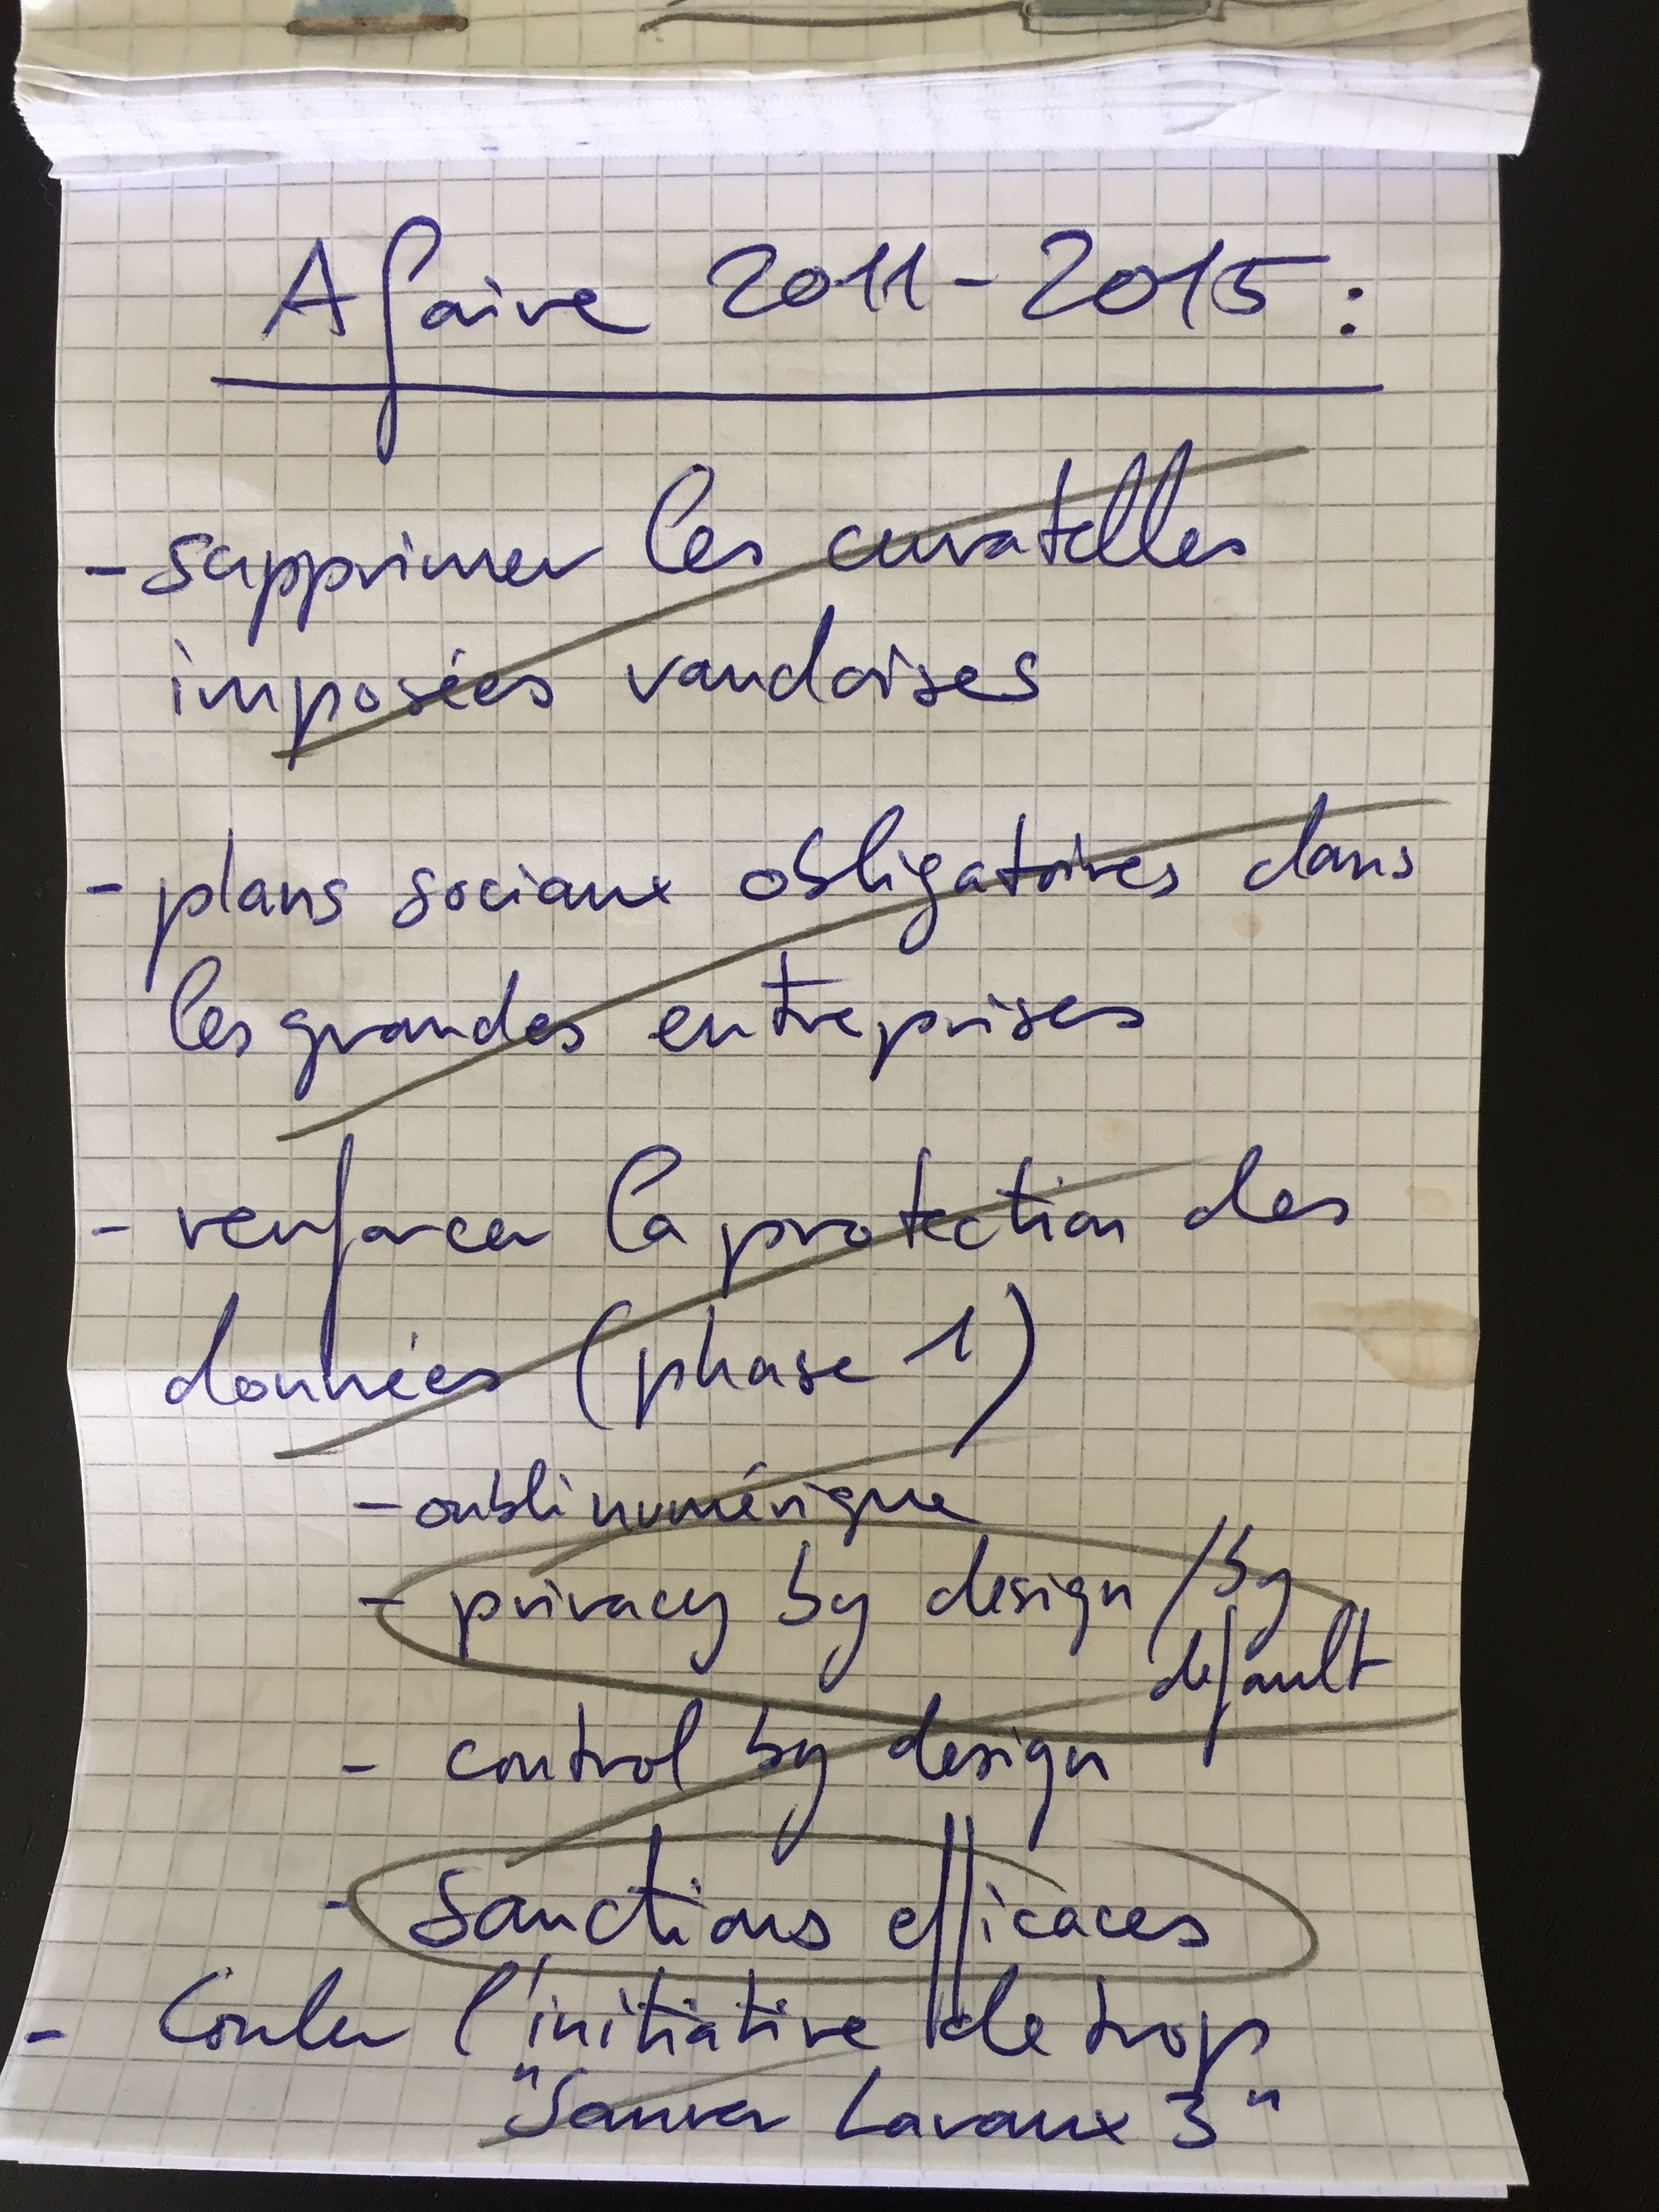 A faire 2011-2015 :
- supprimer les curatelles
imposées vaudoises
- plans sociaux obligatoires dans
les grandes entreprises
- renforcer la protection des
données (phase 1)
- oubli numérique
- privacy by design / by
default
- control by design
- Sanctions efficaces
- Couler l'initiative de trop
"Sauver Lavaux 3"